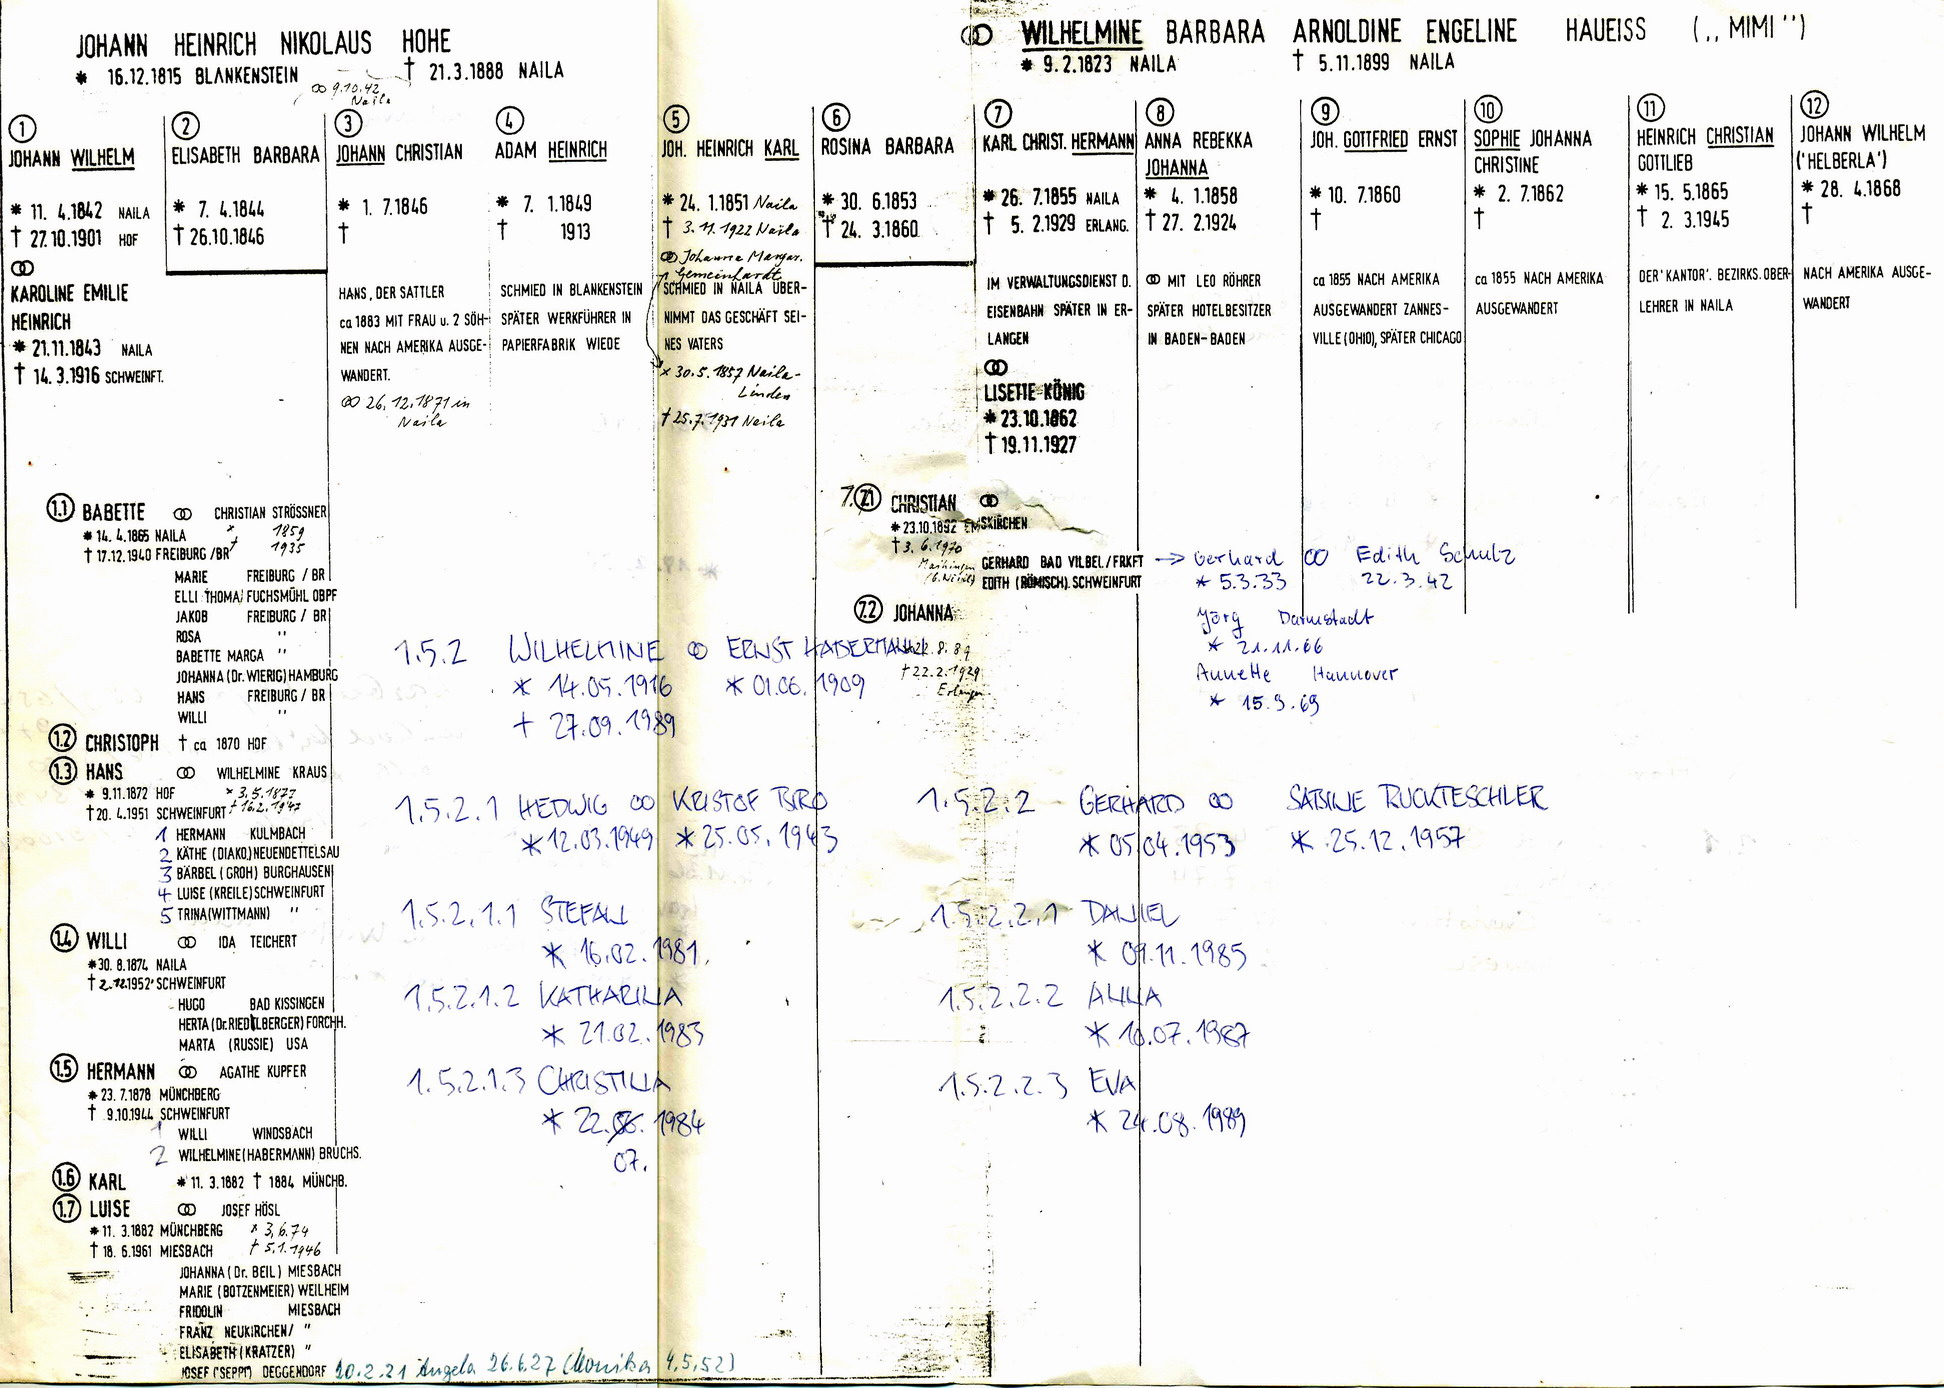 JOHANN HEINRICH NIKOLAUS HOHE
* 16.12.1815 BLANKENSTEIN † 21.3.1888 NAILA
∞ 9.10.42
Naila
∞ WILHELMINE BARBARA ARNOLDINE ENGELINE HAUEISS („MIMI")
* 9.2.1823 NAILA † 5.11.1899 NAILA
1
JOHANN WILHELM
* 11. 4.1842 NAILA
† 27.10.1901 HOF
∞
KAROLINE EMILIE
HEINRICH
* 21.11.1843 NAILA
† 14.3.1916 SCHWEINFT.
2
ELISABETH BARBARA
* 7. 4.1844
† 26.10.1846
3
JOHANN CHRISTIAN
* 1. 7.1846
†
HANS, DER SATTLER
ca 1883 MIT FRAU u. 2 SÖH-
NEN NACH AMERIKA AUSGE-
WANDERT.
∞ 26.12.1871 in
Naila
4
ADAM HEINRICH
* 7. 1.1849
† 1913
SCHMIED IN BLANKENSTEIN
SPÄTER WERKFÜHRER IN
PAPIERFABRIK WIEDE
5
JOH. HEINRICH KARL
* 24. 1.1851 Naila
† 3.11.1922 Naila
∞ Johanna Margar.
Gemeinhardt
SCHMIED IN NAILA ÜBER-
NIMMT DAS GESCHÄFT SEI-
NES VATERS
* 30.5.1857 Naila-
Linden
† 25.7.1931 Naila
6
ROSINA BARBARA
* 30. 6.1853
† 24. 3.1860
7
KARL CHRIST. HERMANN
* 26. 7.1855 NAILA
† 5. 2.1929 ERLANG.
IM VERWALTUNGSDIENST D.
EISENBAHN SPÄTER IN ER-
LANGEN
∞
LISETTE KÖNIG
* 23.10.1862
† 19.11.1927
8
ANNA REBEKKA
JOHANNA
* 4. 1.1858
† 27. 2.1924
∞ MIT LEO RÖHRER
SPÄTER HOTELBESITZER
IN BADEN-BADEN
9
JOH. GOTTFRIED ERNST
* 10. 7.1860
†
ca 1855 NACH AMERIKA
AUSGEWANDERT ZANNES-
VILLE (OHIO), SPÄTER CHICAGO
10
SOPHIE JOHANNA
CHRISTINE
* 2. 7.1862
†
ca 1855 NACH AMERIKA
AUSGEWANDERT
11
HEINRICH CHRISTIAN
GOTTLIEB
* 15. 5.1865
† 2. 3.1945
DER 'KANTOR'. BEZIRKS.OBER-
LEHRER IN NAILA
12
JOHANN WILHELM
('HELBERLA')
* 28. 4.1868
†
NACH AMERIKA AUSGE-
WANDERT
1.1 BABETTE ∞ CHRISTIAN STRÖSSNER
* 14. 4.1865 NAILA * 1859
† 17.12.1940 FREIBURG/BR † 1935
MARIE FREIBURG / BR
ELLI THOMA/ FUCHSMÜHL OBPF
JAKOB FREIBURG / BR
ROSA "
BABETTE MARGA "
JOHANNA (Dr. WIERIG) HAMBURG
HANS FREIBURG / BR
WILLI "
1.2 CHRISTOPH † ca 1870 HOF
1.3 HANS ∞ WILHELMINE KRAUS
* 9.11.1872 HOF * 3.5.1877
† 20. 4.1951 SCHWEINFURT † 16.2.1947
1 HERMANN KULMBACH
2 KÄTHE (DIAKO.) NEUENDETTELSAU
3 BÄRBEL (GROH) BURGHAUSEN
4 LUISE (KREILE) SCHWEINFURT
5 TRINA (WITTMANN) "
1.4 WILLI ∞ IDA TEICHERT
* 30. 8.1874 NAILA
† 2.12.1952 SCHWEINFURT
HUGO BAD KISSINGEN
HERTA (Dr. RIEDELBERGER) FORCHH.
MARTA (RUSSIE) USA
1.5 HERMANN ∞ AGATHE KUPFER
* 23. 7.1878 MÜNCHBERG
† 9.10.1944 SCHWEINFURT
1 WILLI WINDSBACH
2 WILHELMINE (HABERMANN) BRUCHS.
1.6 KARL * 11. 3.1882 † 1884 MÜNCHB.
1.7 LUISE ∞ JOSEF HÖSL
* 11. 3.1882 MÜNCHBERG * 3.6.74
† 18. 6.1961 MIESBACH † 5.1.1946
JOHANNA (Dr. BEIL) MIESBACH
MARIE (BOTZENMEIER) WEILHEIM
FRIDOLIN MIESBACH
FRANZ NEUKIRCHEN/ "
ELISABETH (KRATZER) "
JOSEF ('SEPPI') DEGGENDORF 20.2.21 Angela 26.6.27 (Monika 4.5.52)
7.1 CHRISTIAN ∞
* 23.10.1892 EMSKIRCHEN
† 3.6.1970
GERHARD BAD VILBEL/FRKFT → Gerhard ∞ Edith Schulz
EDITH (RÖMISCH) SCHWEINFURT * 5.3.33 22.3.42
Jörg Darmstadt
* 21.11.66
Annette Hannover
* 15.9.69
7.2 JOHANNA
† 22.2.1929
Erlangen
1.5.2 WILHELMINE ∞ ERNST HABERMANN
* 14.05.1916 * 01.06.1909
† 27.09.1989
1.5.2.1 HEDWIG ∞ KRISTOF BIRO
* 12.03.1949 * 25.05.1943
1.5.2.2 GERHARD ∞ SABINE RUCKTESCHLER
* 05.04.1953 * 25.12.1957
1.5.2.1.1 STEFAN
* 16.02.1981
1.5.2.2.1 DANIEL
* 09.11.1985
1.5.2.1.2 KATHARINA
* 21.02.1983
1.5.2.2.2 ANNA
* 10.07.1987
1.5.2.1.3 CHRISTINA
* 22.06.1984
07.
1.5.2.2.3 EVA
* 24.08.1989